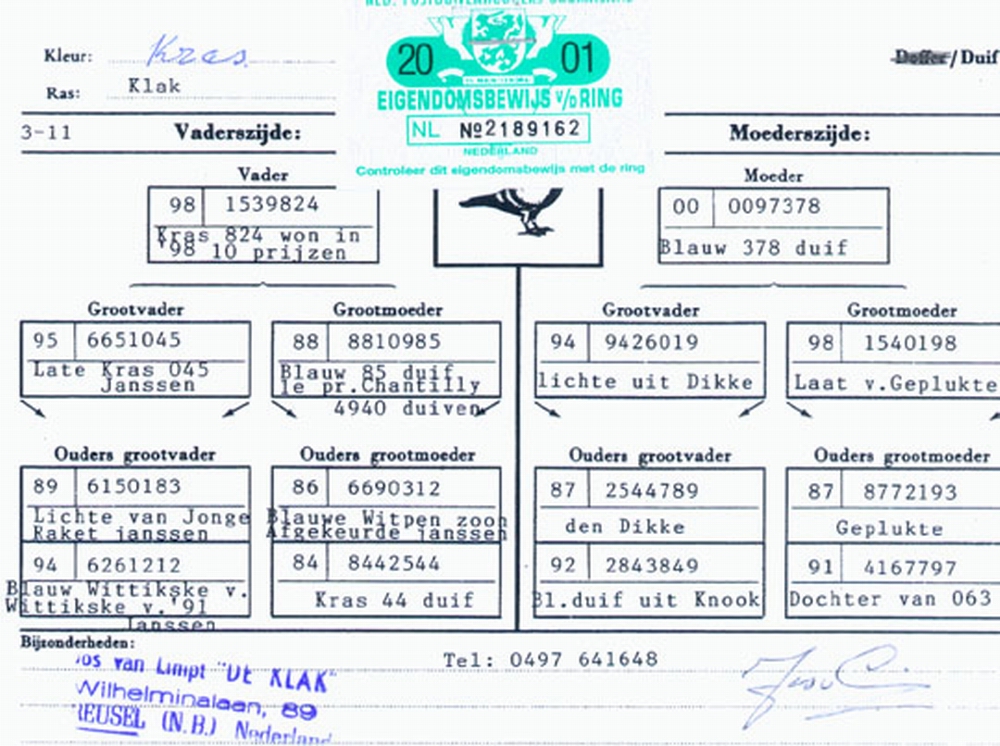 Kleur: Kras
Doffer / Duif
Ras: Klak
20 01
EIGENDOMSBEWIJS v/d RING
NL №2189162
NEDERLAND
Controleer dit eigendomsbewijs met de ring
3-11 Vaderszijde:
Moederszijde:
Vader
98 1539824
Kras 824 won in
'98 10 prijzen
Moeder
00 0097378
Blauw 378 duif
Grootvader
95 6651045
Late Kras 045
Janssen
Grootmoeder
88 8810985
Blauw 85 duif
1e pr.Chantilly
4940 duiven
Grootvader
94 9426019
lichte uit Dikke
Grootmoeder
98 1540198
Laat v.Geplukte
Ouders grootvader
89 6150183
Lichte van Jonge
Raket janssen
94 6261212
Blauw Wittikske v.
Wittikske v.'91
Janssen
Ouders grootmoeder
86 6690312
Blauwe Witpen zoon
Afgekeurde janssen
84 8442544
Kras 44 duif
Ouders grootvader
87 2544789
den Dikke
92 2843849
Bl.duif uit Knook
Ouders grootmoeder
87 8772193
Geplukte
91 4167797
Dochter van 063
Bijzonderheden:
Jos van Limpt "DE KLAK"
Wilhelminalaan, 89
REUSEL (N.B.) Nederland
Tel: 0497 641648